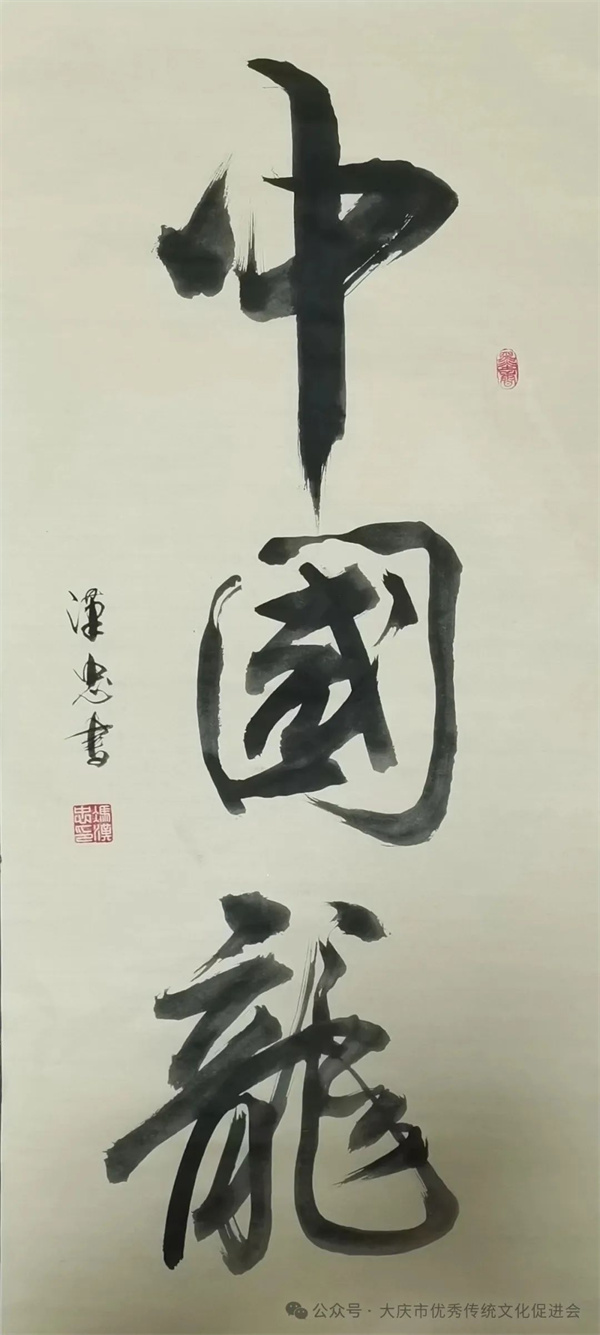 中國龍
漢忠書
馮漢忠印
公众号·大庆市优秀传统文化促进会